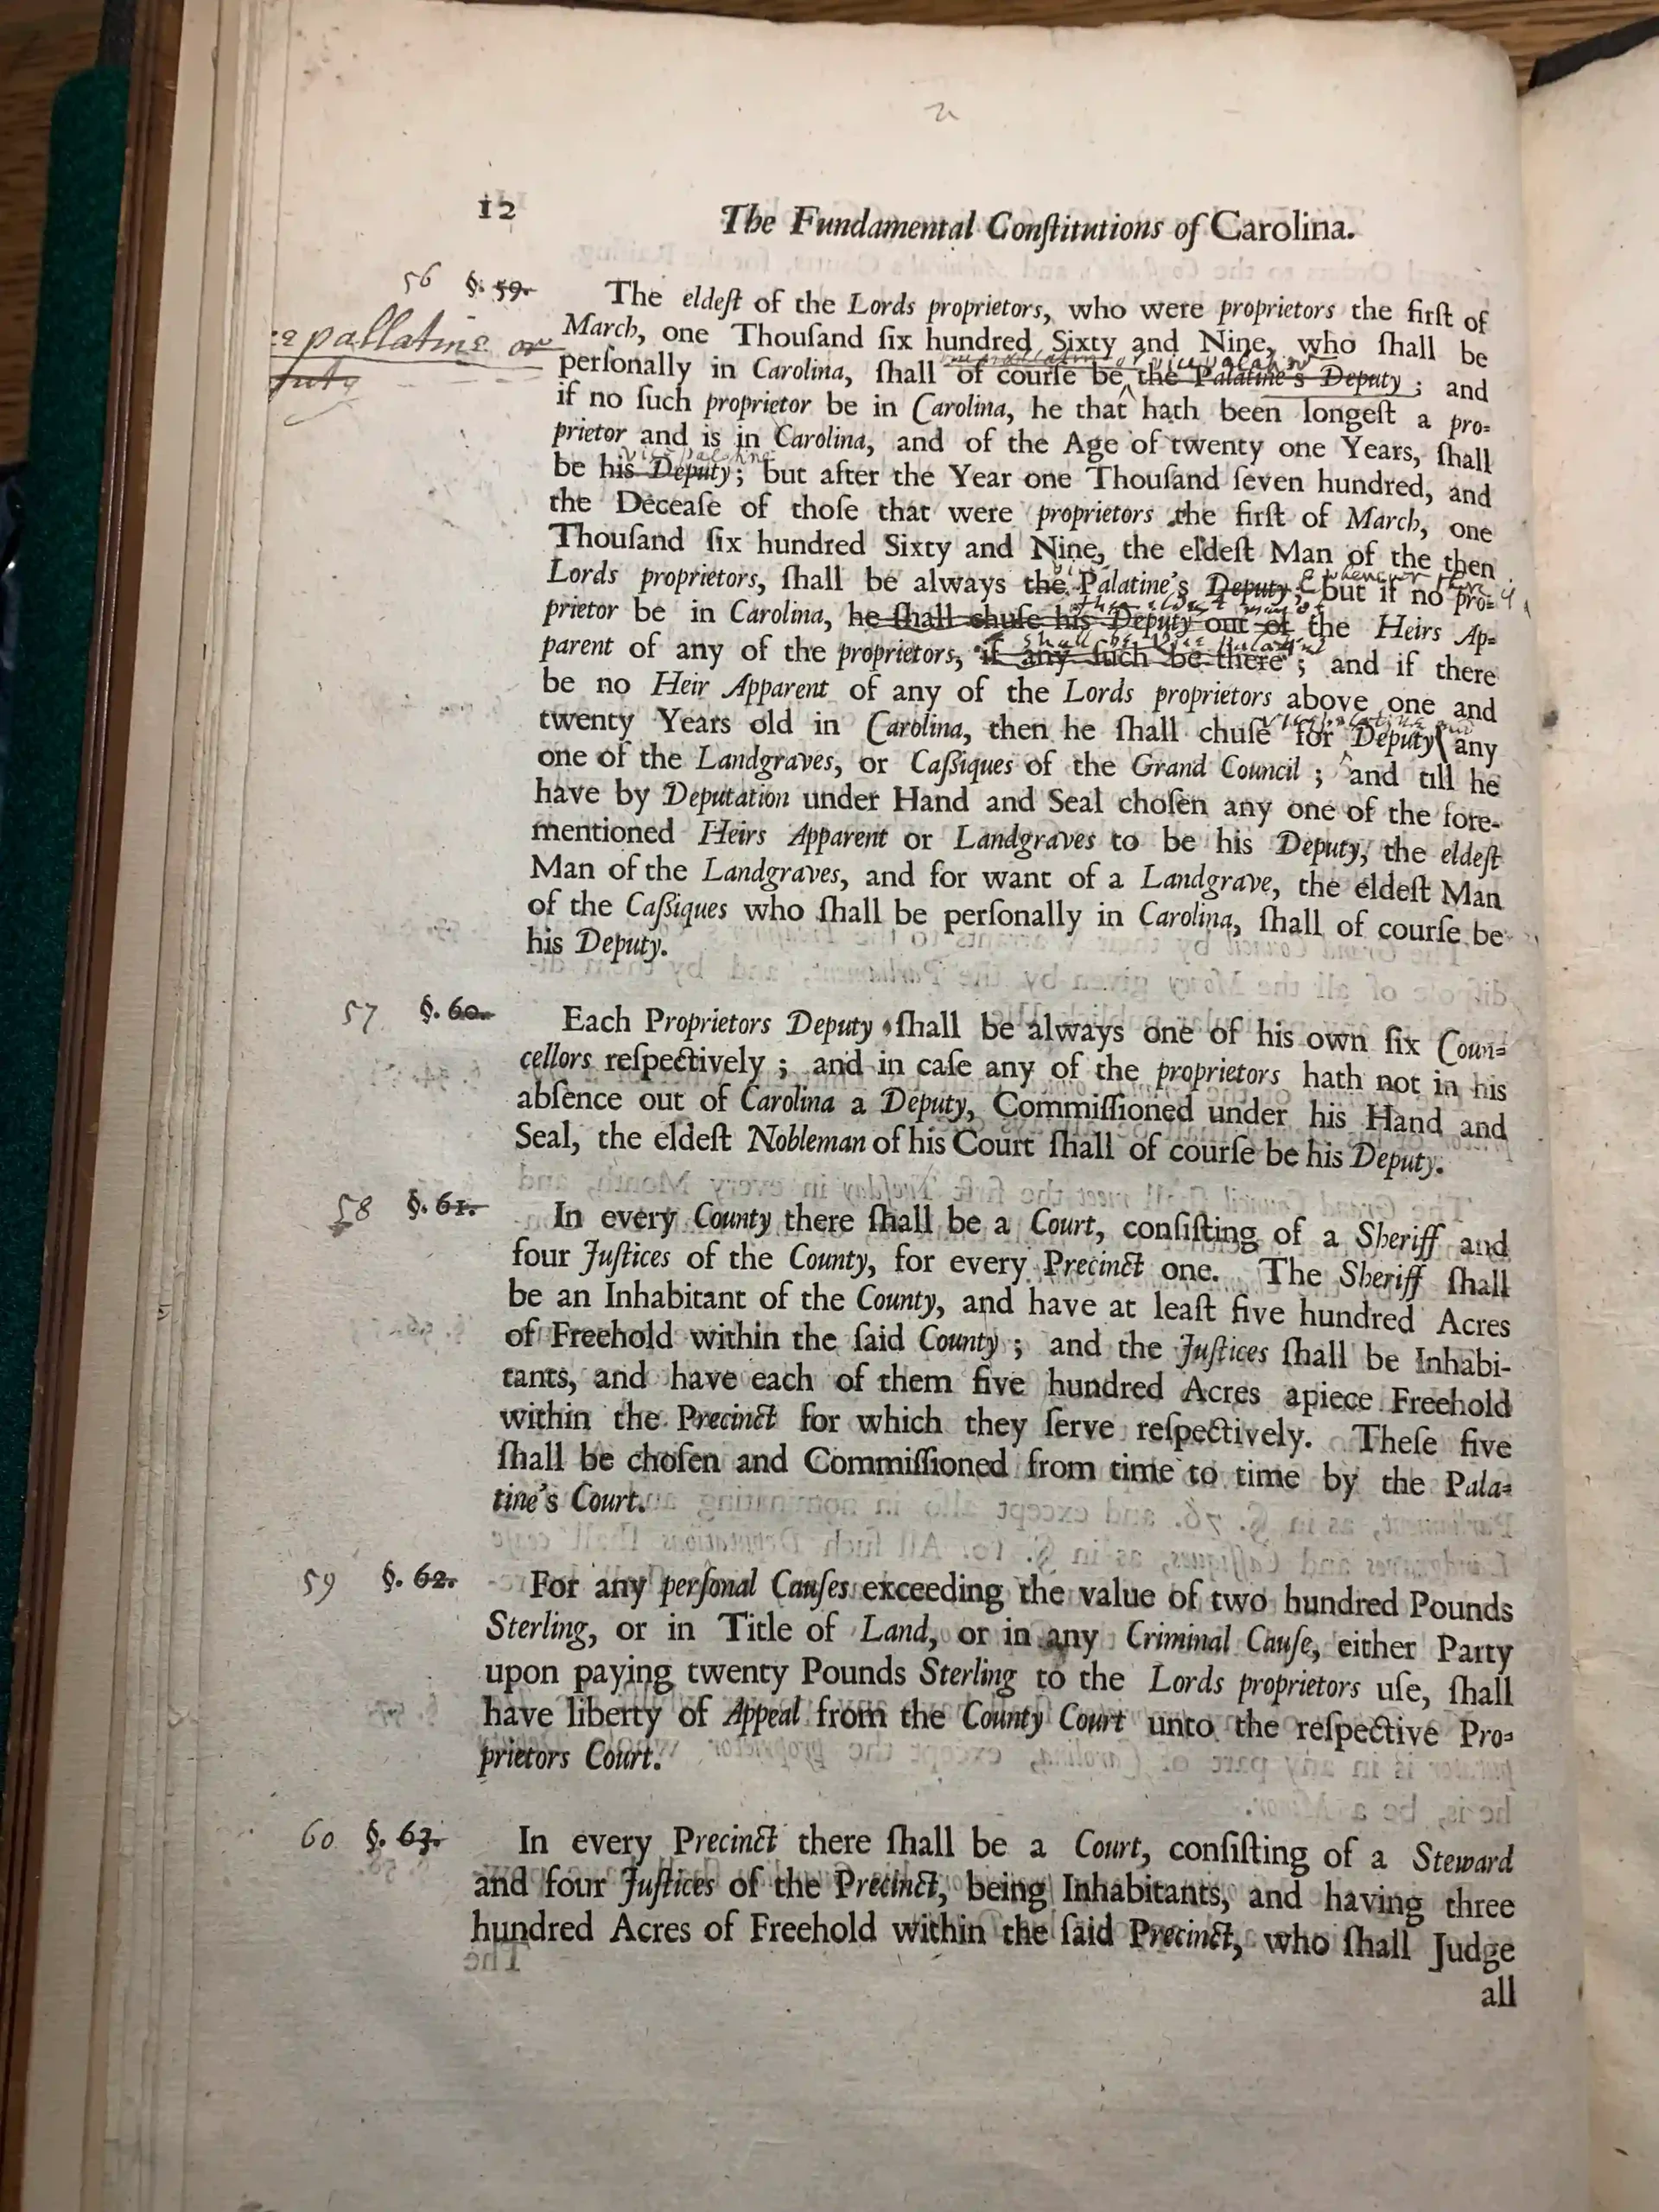 12
The Fundamental Conſtitutions of Carolina.
56 §. 59. The eldeſt of the Lords proprietors, who were proprietors the firſt of
pallatine or
March, one Thouſand ſix hundred Sixty and Nine, who ſhall be
perſonally in Carolina, ſhall of courſe be the Palatine's Deputy; and
if no ſuch proprietor be in Carolina, he that hath been longeſt a pro-
prietor and is in Carolina, and of the Age of twenty one Years, ſhall
be his Deputy; but after the Year one Thouſand ſeven hundred, and
the Deceaſe of thoſe that were proprietors the firſt of March, one
Thouſand ſix hundred Sixty and Nine, the eldeſt Man of the then
whenever
Lords proprietors, ſhall be always the Palatine's Deputy; but if no pro-
the eldest man of
prietor be in Carolina, he ſhall chuſe his Deputy out of the Heirs Ap-
shall be Vice Palatine
parent of any of the proprietors, if any ſuch be there; and if there
be no Heir Apparent of any of the Lords proprietors above one and
twenty Years old in Carolina, then he ſhall chuſe for Deputy any
one of the Landgraves, or Caſſiques of the Grand Council; and till he
have by Deputation under Hand and Seal choſen any one of the fore-
mentioned Heirs Apparent or Landgraves to be his Deputy, the eldeſt
Man of the Landgraves, and for want of a Landgrave, the eldeſt Man
of the Caſſiques who ſhall be perſonally in Carolina, ſhall of courſe be
his Deputy.
57 §. 60. Each Proprietors Deputy ſhall be always one of his own ſix Coun-
cellors reſpectively; and in caſe any of the proprietors hath not in his
abſence out of Carolina a Deputy, Commiſſioned under his Hand and
Seal, the eldeſt Nobleman of his Court ſhall of courſe be his Deputy.
58 §. 61. In every County there ſhall be a Court, conſiſting of a Sheriff and
four Juſtices of the County, for every Precinct one. The Sheriff ſhall
be an Inhabitant of the County, and have at leaſt five hundred Acres
of Freehold within the ſaid County; and the Juſtices ſhall be Inhabi-
tants, and have each of them five hundred Acres apiece Freehold
within the Precinct for which they ſerve reſpectively. Theſe five
ſhall be choſen and Commiſſioned from time to time by the Pala-
tine's Court.
59 §. 62. For any perſonal Cauſes exceeding the value of two hundred Pounds
Sterling, or in Title of Land, or in any Criminal Cauſe, either Party
upon paying twenty Pounds Sterling to the Lords proprietors uſe, ſhall
have liberty of Appeal from the County Court unto the reſpective Pro-
prietors Court.
60 §. 63. In every Precinct there ſhall be a Court, conſiſting of a Steward
and four Juſtices of the Precinct, being Inhabitants, and having three
hundred Acres of Freehold within the ſaid Precinct, who ſhall Judge
all